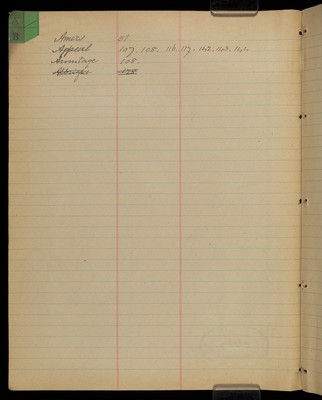 Amers 81
Appeal 107. 108. 116. 117. 142. 143. 144.
Armitage 108.